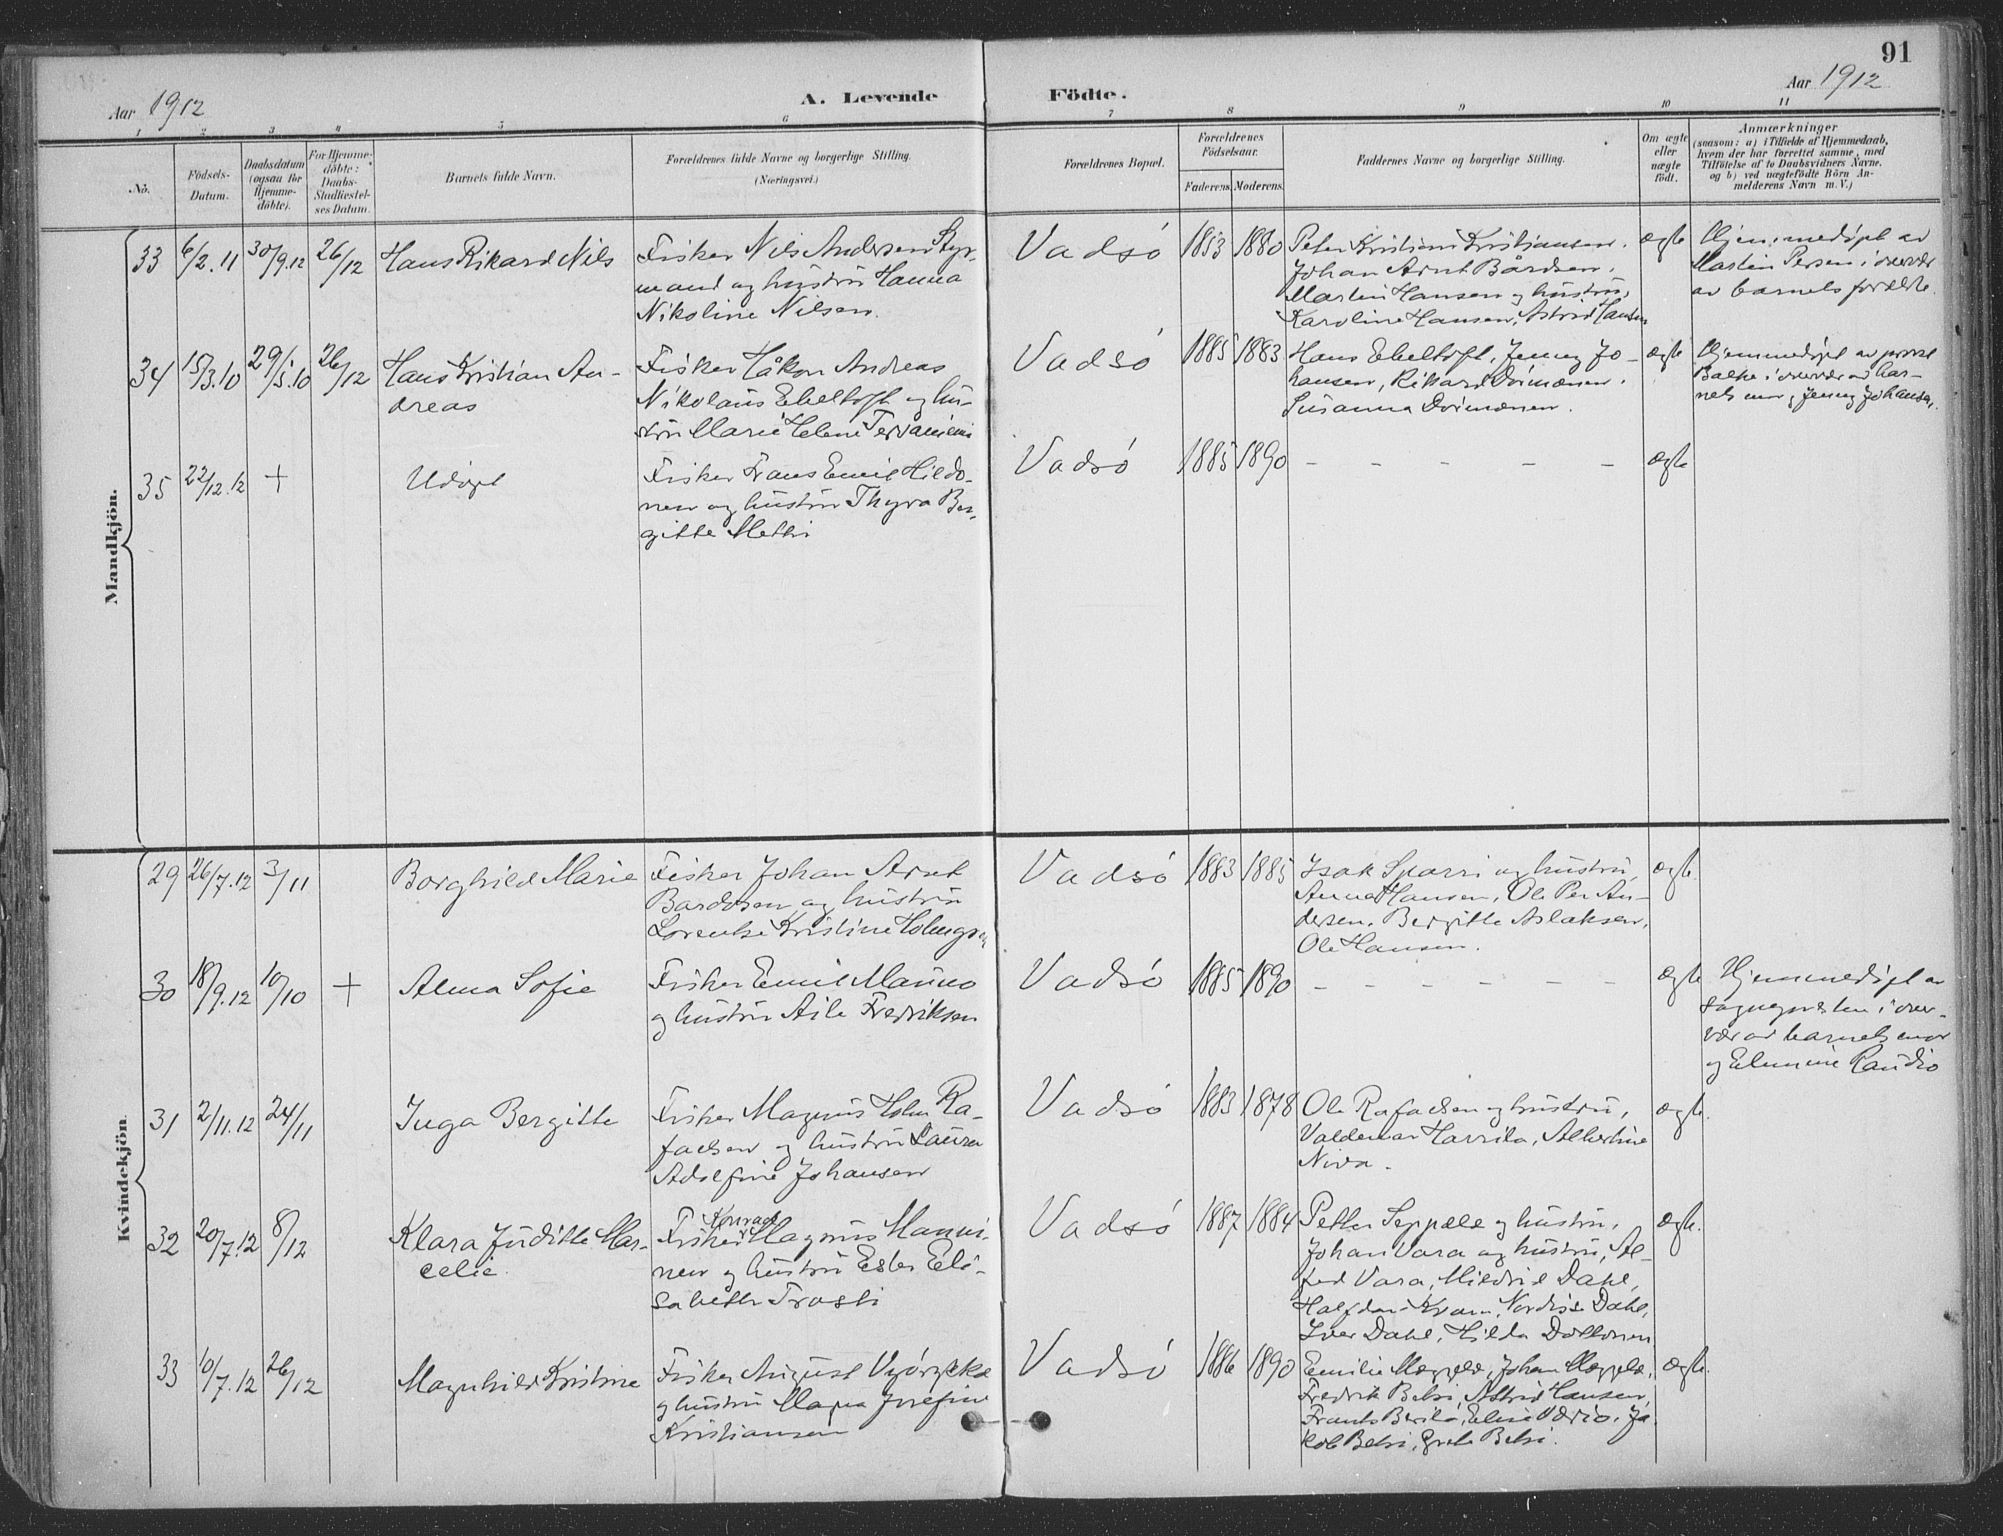 91
Aar 1912
A. Levende Födte.
Aar 1912
1 2 3 4 5 6 7 8 9 10 11
No.
Födsels-
Datum.
Daabsdatum
(ogsaa for
Hjemme-
döbte).
For Hjemme-
döbte:
Daabs-
Stadfæstel-
ses Datum.
Barnets fulde Navn.
Forældrenes fulde Navne og borgerlige Stilling.
(Næringsvei.)
Forældrenes Bopæl.
Forældrenes
Födselsaar.
Faderens. Moderens.
Faddernes Navne og borgerlige Stilling.
Om ægte
eller
uægte
födt.
Anmærkninger
(saasom: a) i Tilfælde af Hjemmedaab,
hvem der har forrettet samme, med
Tilföielse af to Daabsvidners Navne.
og b) ved uægtefödte Börn An-
melderens Navn m. V.)
Mandkjön.
33
6/2.11
30/9.12
26/12
Hans Rikard Nils
Fisker Nils Andersen Styr-
mand og hustru Hanna
Nikoline Nilsen.
Vadsö
1853
1880
Peter Kristian Kristiansen.
Johan Arnt Bårdsen,
Martin Hansen og hustru,
Karoline Hansen, Astrid Hansen
ægte
Hjemmedöpt av
Martin Persen i overvær
av barnets forældre.
34
15/3.10
29/5.10
26/12
Hans Kristian An-
dreas
Fisker Håkon Andreas
Nikolaus Ebeltoft og hu-
stru Marie Helene Tervaniemi
Vadsö
1885
1883
Hans Ebeltoft, Jenny Jo-
hansen, Rikard Dorimænen.
Susanna Dorimænen.
ægte
Hjemmedöpt av provst
Balke i overvær av bar-
nets mor og Jenny Johansen.
35
22/12.12
+
Udöpt
Fisker Frans Emil Hildo-
nen og hustru Thyra Ber-
gitte Metti
Vadsö
1885
1890
– – – – –
ægte
Kvindekjön.
29
26/7.12
3/11
Borghild Marie
Fisker Johan Arnt
Bardosen og hustru
Lorentse Kristine Holmgren
Vadsö
1883
1885
Isak Sparri og hustru,
Anna Hansen, Ole Per An-
dersen, Bergitte Aslaksen,
Ole Hansen.
ægte.
30
18/9.12
10/10
+
Alma Sofie
Fisker Emil Mauno
og hustru Aile Fredriksen
Vadsö
1885
1890
– – – – – –
ægte
Hjemmedöpt av
sognepresten i over-
vær av barnets mor
og Elmine Raudio
31
2/11.12
24/11
Inga Bergitte
Fisker Magnus Holm Ra-
faelsen og hustru Laura
Adolfine Johansen
Vadsö
1883
1878
Ole Rafaelsen og hustru,
Valdemar Harrila, Albertine
Niva.
ægte.
32
20/7.12
8/12
Klara Juditte Mar-
celie.
Konrad
Fisker Magnus Manni-
nen og hustru Ester Eli-
sabeth Trasti
Vadsö
1887
1884
Petter Seppælæ og hustru,
Johan Vara og hustru, Al-
fred Vara, Mildrid Dahl,
Halfdan Kvam, Nordis Dahl,
Iver Dahl, Hilda Dottonen
ægte.
33
10/7.12
26/12
Magnhild Kristine
Fisker August Vyörykkæ
og hustru Magna Josefine
Kristiansen
Vadsö
1886
1890
Emilie Mæppelæ, Johan Mæppelæ,
Fredrik Betsi, Astrid Hansen,
Frants Berilö, Eline Værio, Ja-
kob Betsi, Grete Betsi.
ægte.